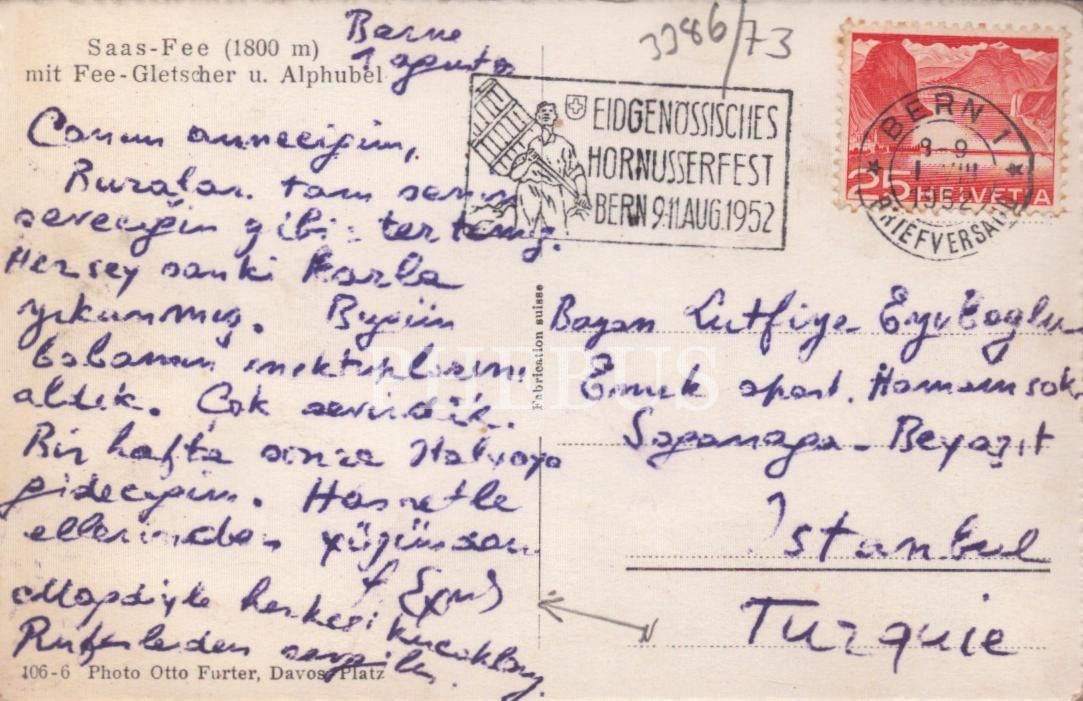 Saas-Fee (1800 m)
mit Fee-Gletscher u. Alphubel
Berne
1 agustos
3386/73
EIDGENÖSSISCHES
HORNUSSERFEST
BERN 9-11.AUG.1952
BERN 1
8-9
1 VIII
1952
BRIEFVERSAND
25 HELVETIA
Canım anneciğim,
Buralar tam senin
seveceğin gibi: tertemiz.
Herşey sanki karla
yıkanmış. Bugün
babamın mektuplarını
aldık. Çok sevindik.
Bir hafta sonra Italyaya
gideceğim. Hasretle
ellerinden yüzünden
Eyub
herkesi kucaklarız
sevgiler.
Fabrication suisse
Bayan Lutfiye Eyuboglu
Emek apart. Hamam sok.
Soganaga - Beyazıt
Istanbul
Turquie
PHEBUS
106-6 Photo Otto Furter, Davos-Platz